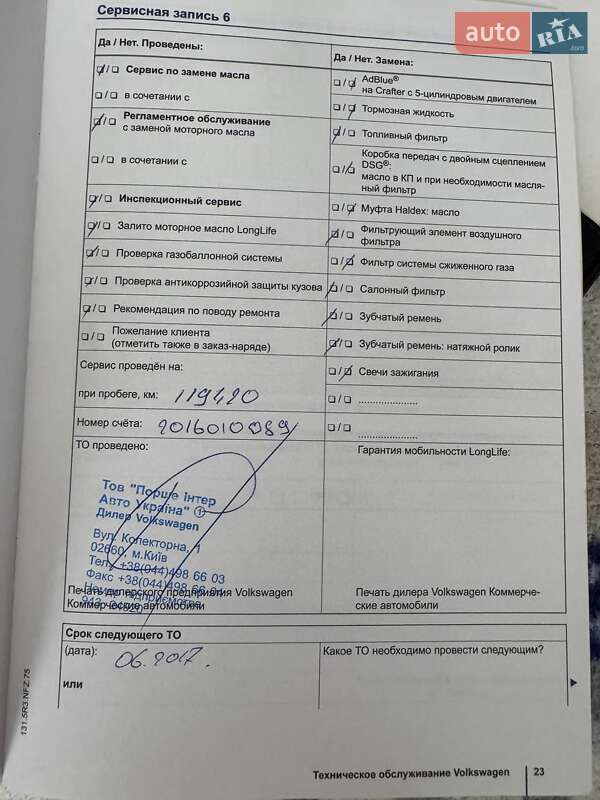 Сервисная запись 6
auto RIA.com
Да / Нет. Проведены:
Сервис по замене масла
в сочетании с
Регламентное обслуживание
с заменой моторного масла
в сочетании с
Инспекционный сервис
Залито моторное масло LongLife
Проверка газобаллонной системы
Проверка антикоррозийной защиты кузова
Рекомендация по поводу ремонта
Пожелание клиента
(отметить также в заказ-наряде)
Сервис проведён на:
при пробеге, км: 119420
Номер счёта: 2016010089
ТО проведено:
Тов "Порше Інтер
Авто Україна" 1
Дилер Volkswagen
Вул. Колекторна, 1
02660, м.Київ
Тел. +38(044)498 66 03
Факс +38(044)498 66
Печать дилерского предприятия Volkswagen
Коммерческие автомобили
Да / Нет. Замена:
AdBlue®
на Crafter с 5-цилиндровым двигателем
Тормозная жидкость
Топливный фильтр
Коробка передач с двойным сцеплением
DSG®:
масло в КП и при необходимости масля-
ный фильтр
Муфта Haldex: масло
Фильтрующий элемент воздушного
фильтра
Фильтр системы сжиженного газа
Салонный фильтр
Зубчатый ремень
Зубчатый ремень: натяжной ролик
Свечи зажигания
.....................
.....................
Гарантия мобильности LongLife:
Печать дилера Volkswagen Коммерче-
ские автомобили
Срок следующего ТО
(дата): 06.2017.
или
Какое ТО необходимо провести следующим?
131.5R3.NFZ.75
Техническое обслуживание Volkswagen 23